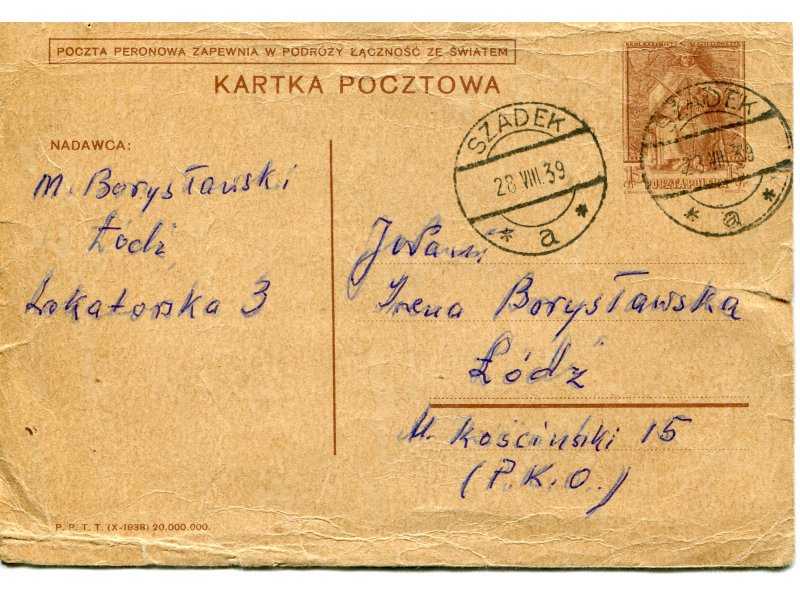 POCZTA PERONOWA ZAPEWNIA W PODRÓŻY ŁĄCZNOŚĆ ZE ŚWIATEM
KARTKA POCZTOWA
SZADEK
28 VIII.39
* a *
SZADEK
28 VIII.39
* a *
15 POCZTA POLSKA 15
NADAWCA:
M. Borysławski
Łódź
Lokatorska 3
Irena Borysławska
Łódź
M. Kościński 15
(P.K.O.)
P. P. T. T. (X-1938) 20.000.000.